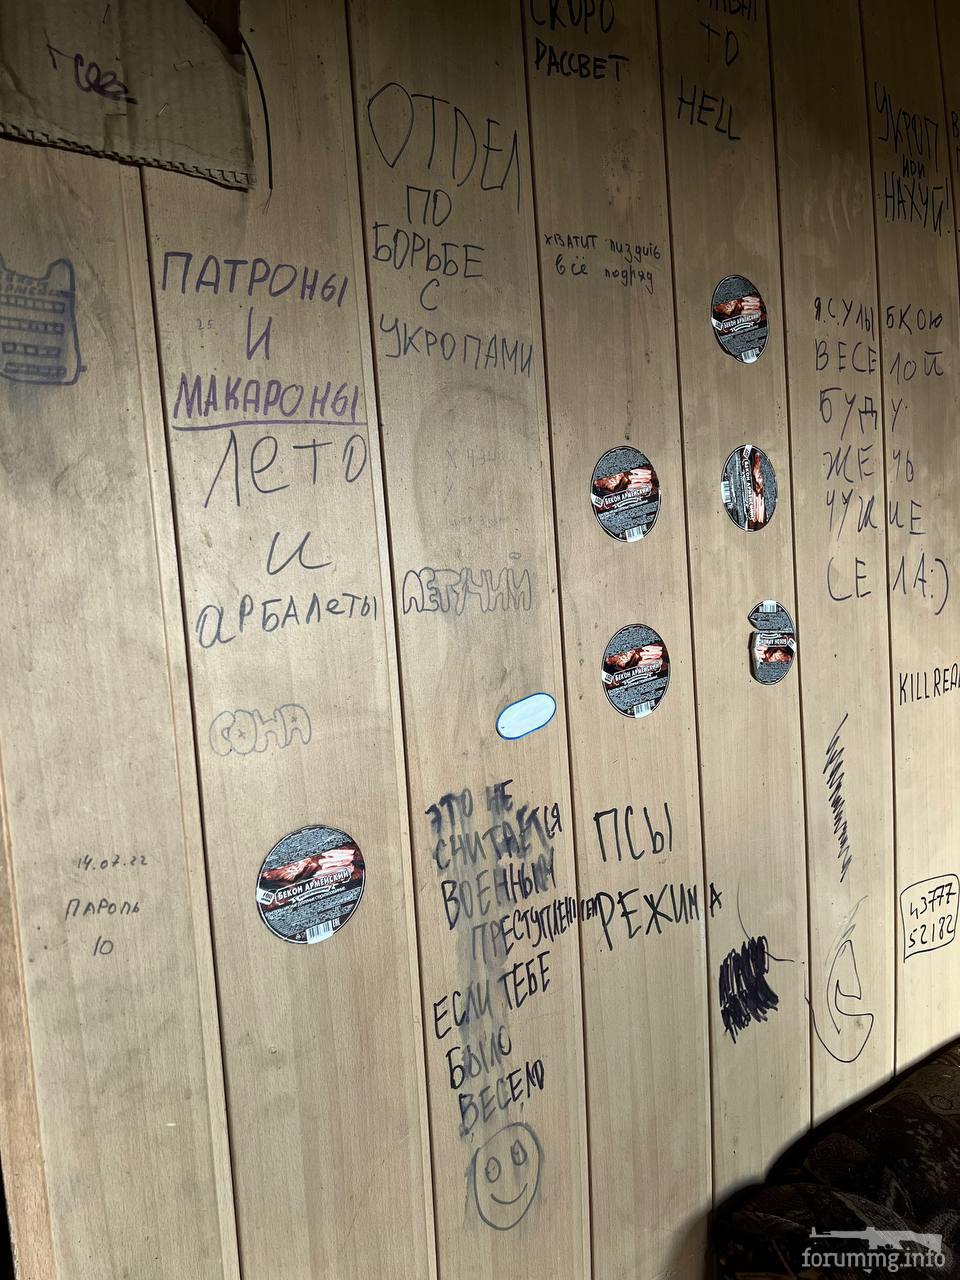 СКОРО
РАССВЕТ
ТО
HELL
УКРОП
ИЛИ
НАХУЙ!
ОТДЕЛ
ПО
БОРЬБЕ
С
УКРОПАМИ
ХВАТИТ ПИЗДИТЬ
ВСЁ ПОДРЯД
ПАТРОНЫ
И
МАКАРОНЫ
ЛЕТО
И
АРБАЛЕТЫ
СОНЯ
ЛЕТУЧИЙ
Я С УЛЫБКОЮ
ВЕСЕЛОЙ
БУДУ
ЖЕЧЬ
ЧУЖИЕ
СЕЛА:)
БЕКОН АРМЕНСКИЙ
БЕКОН АРМЕНСКИЙ
БЕКОН АРМЕНСКИЙ
БЕКОН АРМЕНСКИЙ
БЕКОН АРМЕНСКИЙ
14.07.22
ПАРОЛЬ
10
ЭТО НЕ
СЧИТАЕТСЯ
ВОЕННЫМ
ПРЕСТУПЛЕНИЕМ
ЕСЛИ ТЕБЕ
БЫЛО
ВЕСЕЛО
ПСЫ
РЕЖИМА
43777
52182
forummg.info